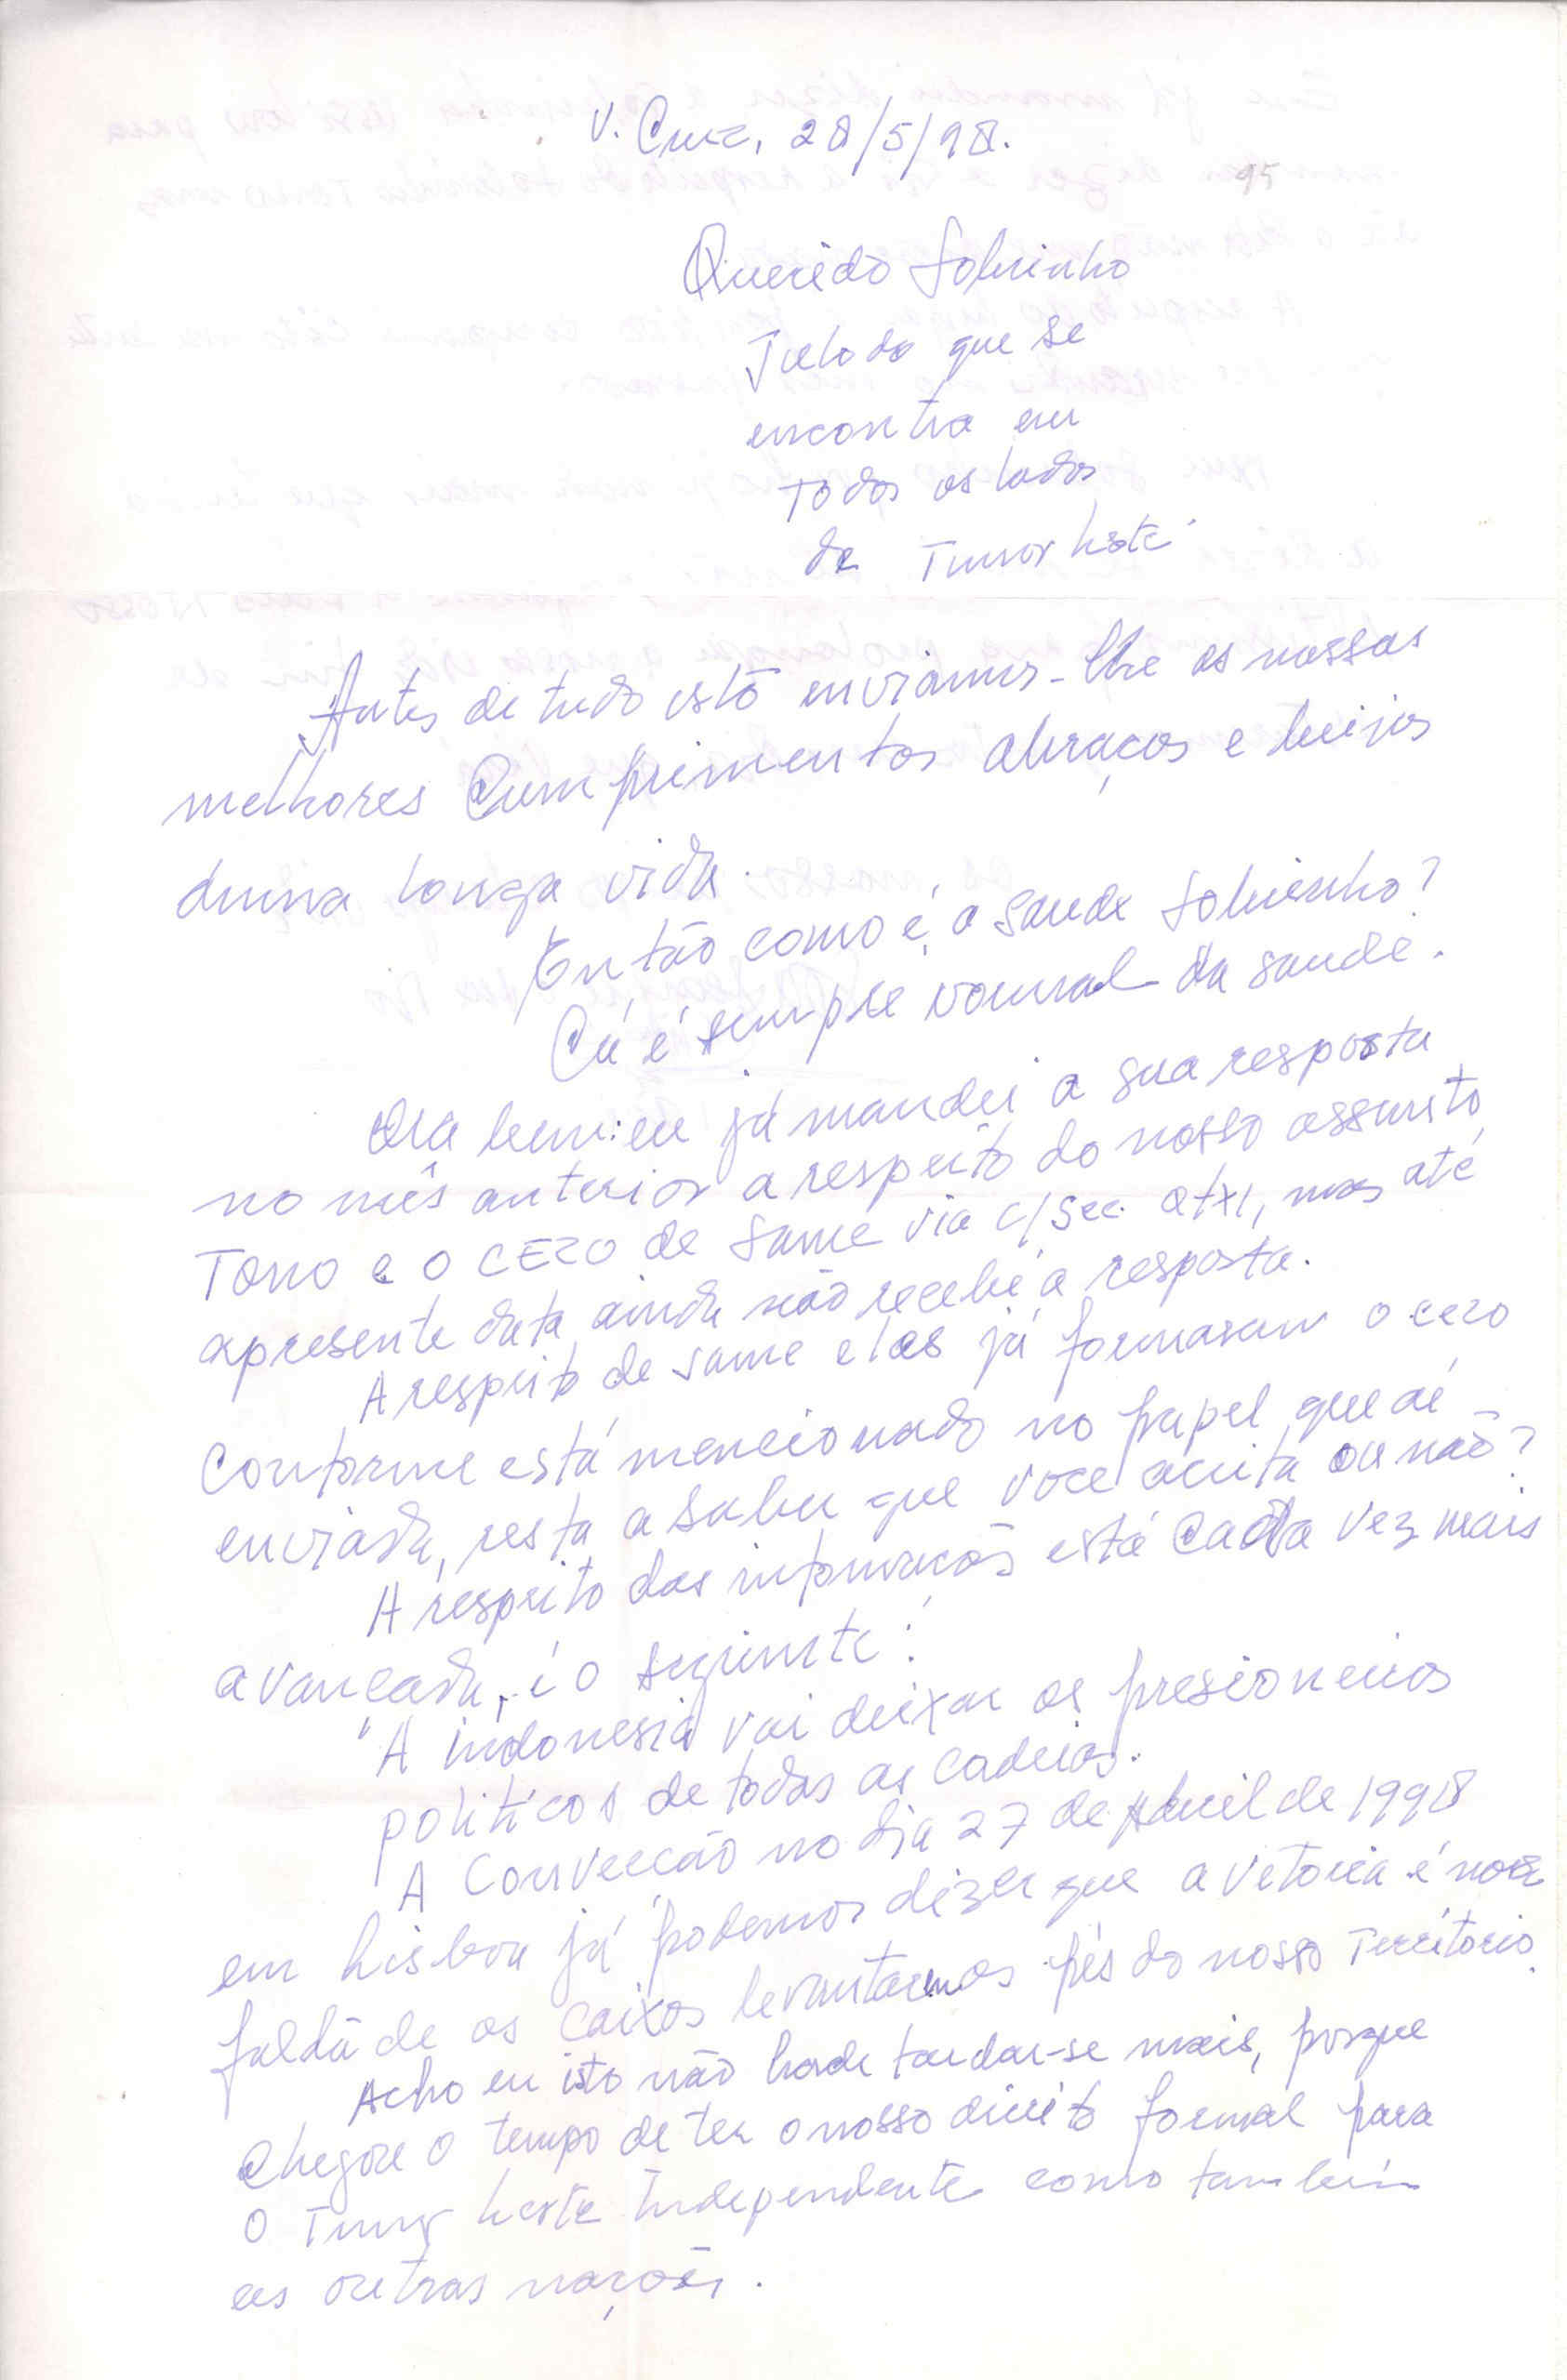 V. Cruz, 28/5/98.
95
Querido Sobrinho
que se
encontra em
Todos os lados
de Timor Leste
Antes de tudo isto enviamos-lhe as nossas
melhores Cumprimentos abraços e beijos
duma longa vida.
Então como é, a saude Sobrinho?
Cá é sempre normal da saude.
Ora bem: eu já mandei a sua resposta
no mês anterior a respeito do nosso assunto
Tono e o CEZO de Same via c/Sec. mas até
apresente data ainda não recebi a resposta.
A respeito de same elas já formaram o cezo
Conforme está mencionado no papel que aí
enviada, resta a saber que voce aceita ou não?
A respeito das informacões está Cada vez mais
avancada, é o seguinte:
"A indonesia vai deixar os presioneiros
politicos de todas as cadeias.
A Convecção no dia 27 de Abril de 1998
em Lisboa já podemos dizer que a vetoria é nossa
falta de os caixos levantarmos pés do nosso Territorio.
Acho eu isto não hade tardar-se mais, porque
Chegou o tempo de ter o nosso direito formal para
O Timor Leste Independente como tambem
as outras nações.